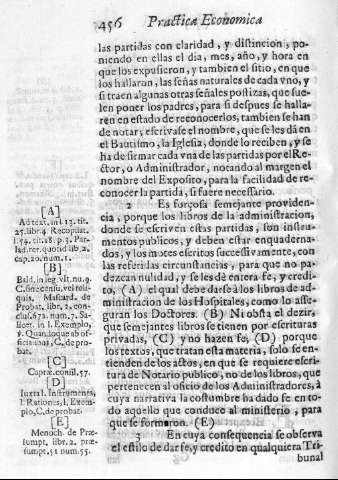 456 Practica Economica
las partidas con claridad, y distincion, po-
niendo en ellas el dia, mes, año, y hora en
que los expusieron, y tambien el sitio, en que
los hallaron, las señas naturales de cada vno, y
si traen algunas otras señales postizas, que sue-
len poner los padres, para si despues se halla-
ren en estado de reconocerlos, tambien se han
de notar, escrivase el nombre, que se les dá en
el Bautismo, la Iglesia, donde lo reciben, y se
ha de firmar cada vna de las partidas por el Re-
ctor, o Administrador, notando al margen el
nombre del Exposito, para la facilidad de re-
conocer la partida, si fuere necessario.
2 Es forçosa semejante providen-
cia, porque los libros de la administracion,
donde se escriven estas partidas, son instru-
mentos publicos, y deben estar enquaderna-
dos, y los motes escritos successivamente, con
las referidas circunstancias, para que no pa-
dezcan nulidad, y se les dè entera fe, y credi-
to, (A) el qual debe darse à los libros de ad-
ministracion de los Hospitales, como lo asse-
guran los Doctores. (B) Ni obsta el dezir,
que semejantes libros se tienen por escrituras
privadas, (C) y no hazen fe, (D) porque
los textos, que tratan esta materia, solo se en-
tienden de los actos, en que se requiere escri-
tura de Notario publico, no de los libros, que
pertenecen al oficio de los Administradores, à
cuya narrativa la costumbre ha dado se en to-
do aquello que conduce al ministerio, para
que se formaron. (E)
3 En cuya consequencia se observa
el estilo de dar fe, y credito en qualquiera Tri-
bunal
[A]
Ad text. in l. 13. tit.
25. libr. 4. Recopilat.
l. 54. tit. 18. p. 3. Par-
lad. rer. quotid lib. 2.
cap. 20. num. 1.
[B]
Bald. in leg. vlt. nu. 9.
C. fine censu, vel reli-
quis. Mascard. de
Probat. libr. 2. con-
clus. 672. num. 7. Sa-
licet. in l. Exemplo,
&. Quanquae ab of-
ficialibus, C. de pro-
bat.
[C]
Capræ. consil. 57.
[D]
Iuxta l. Instrumenta,
l. Rationes, l. Exem-
plo, C. de probat.
[E]
Menoch. de Præ-
sumpt. libr. 2. præ-
sumpt. 51 num. 55.